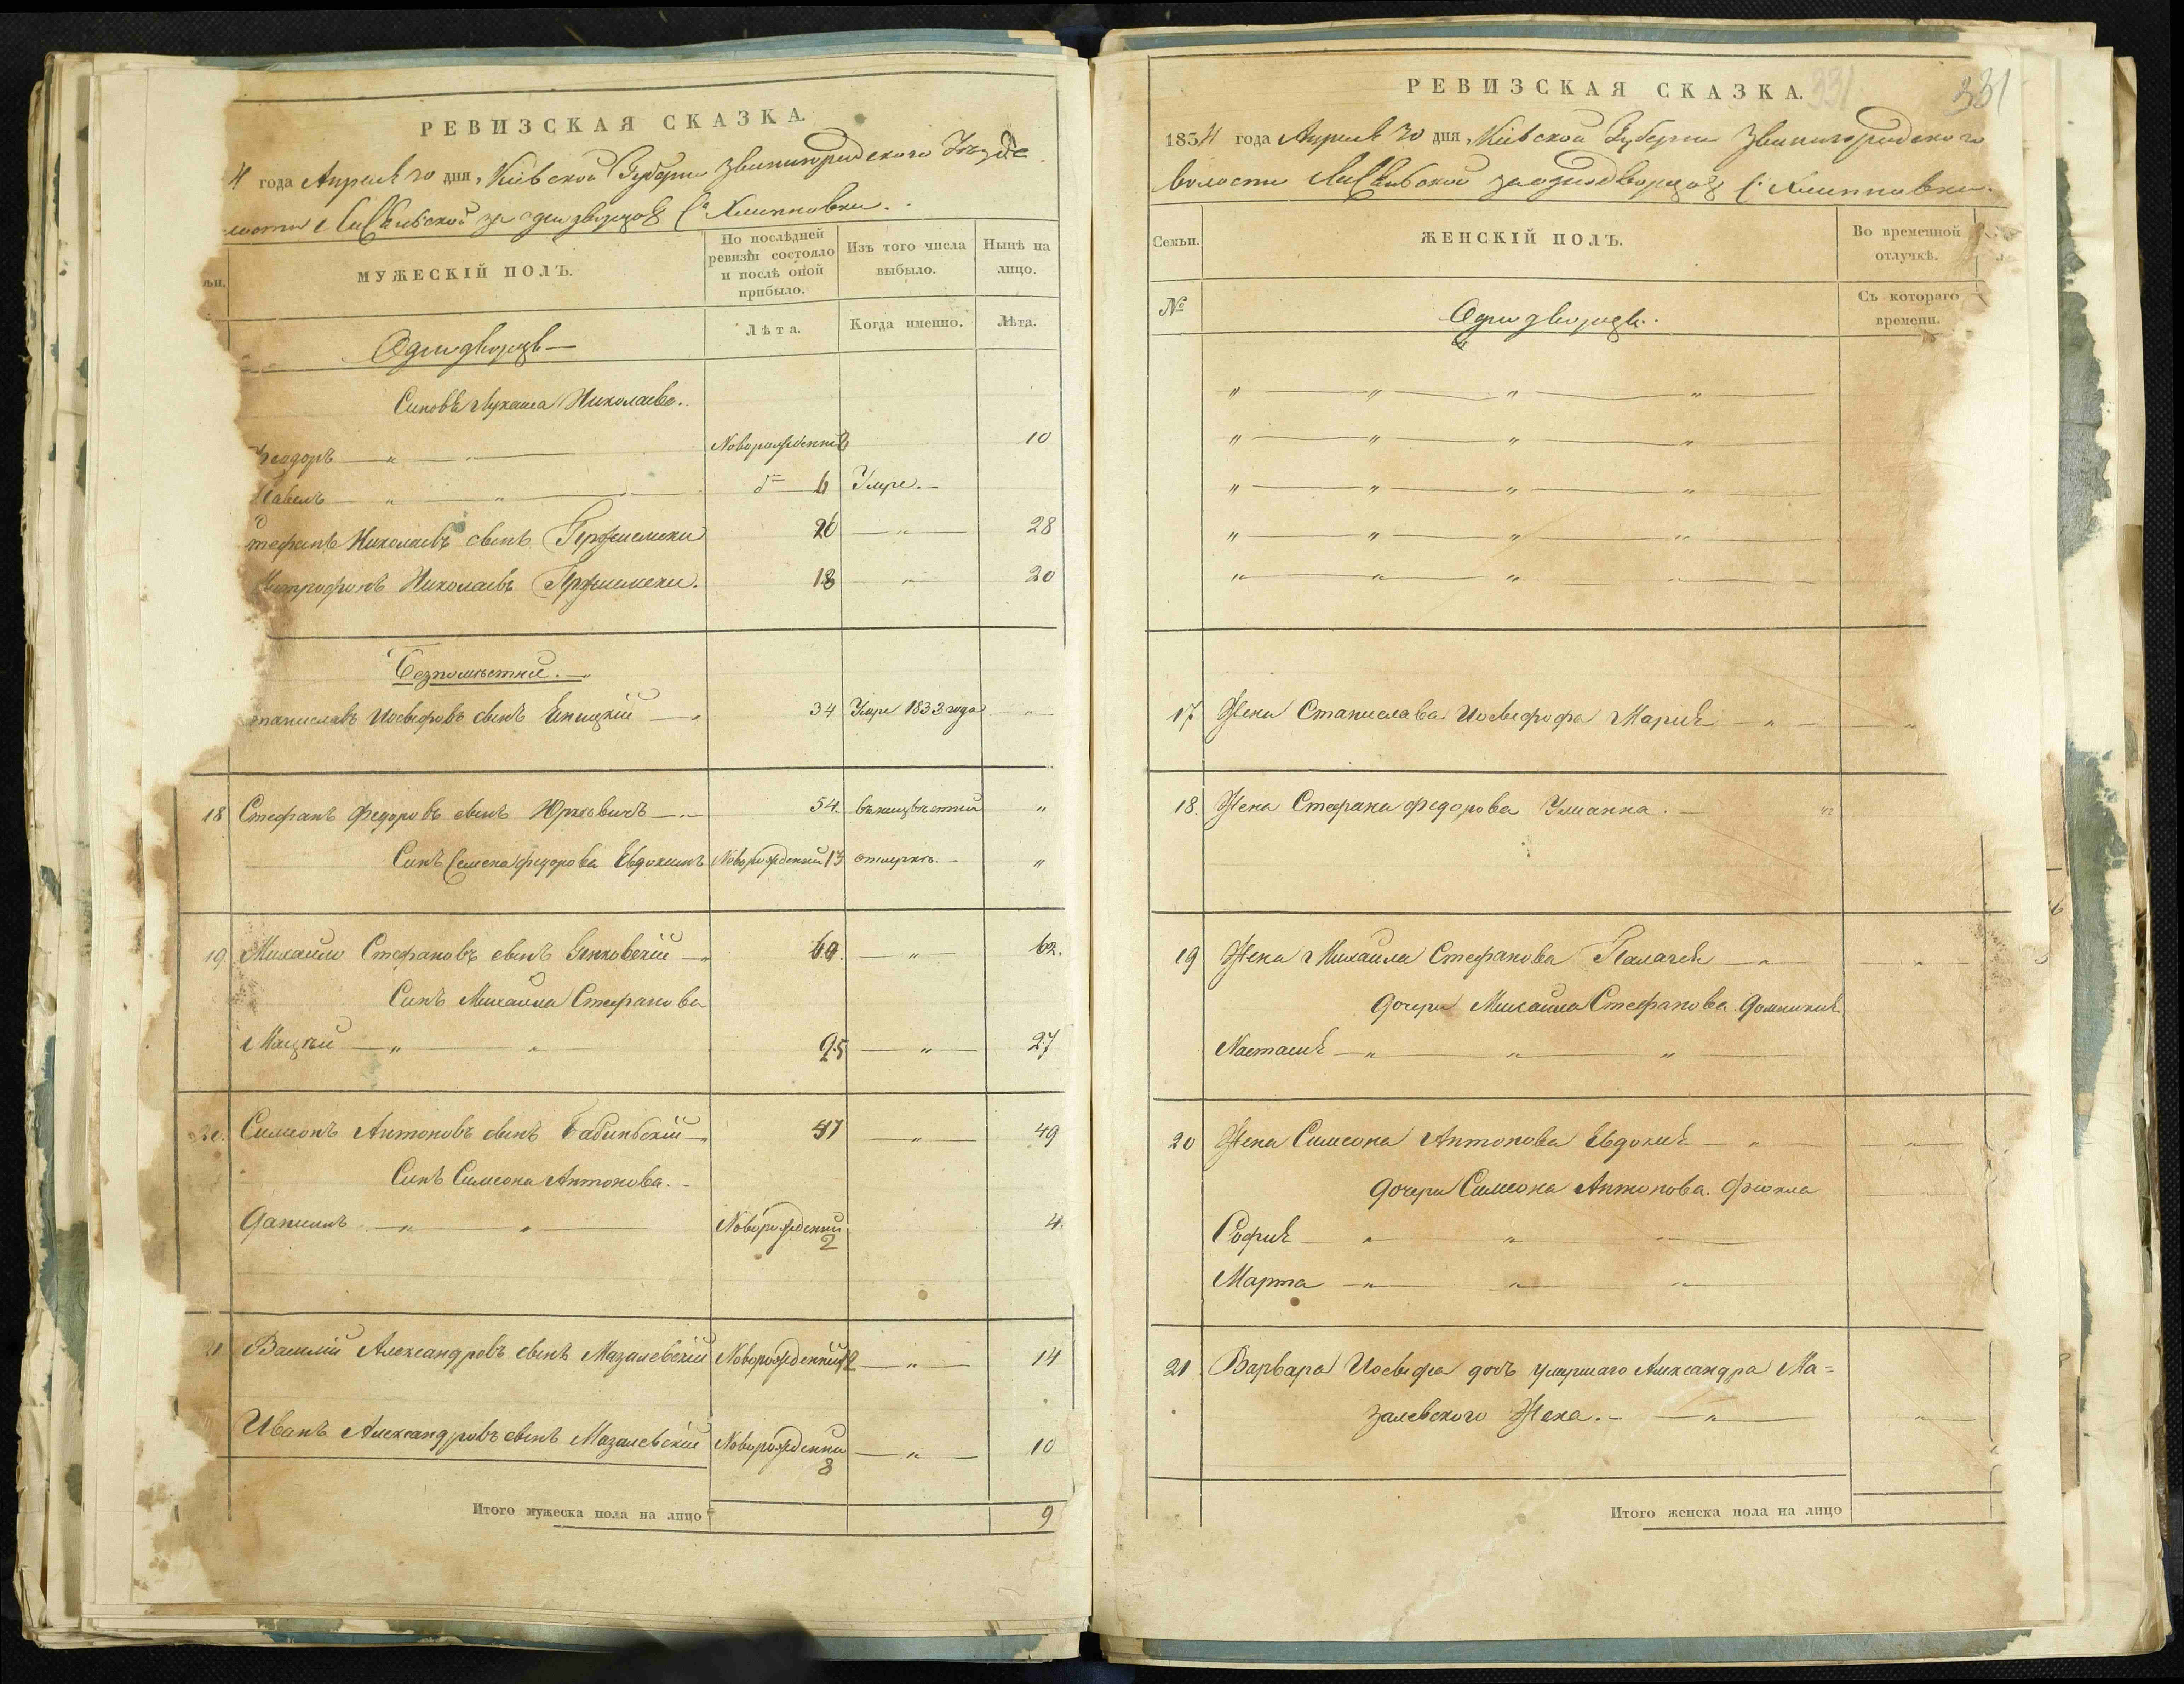 РЕВИЗСКАЯ СКАЗКА.
4 года Апреля 30 дня, Кіевской Губерни Звинигородского Уезда
за однодворцов С. Хлиповки.
ьи.
МУЖЕСКІЙ ПОЛЪ.
По послѣдней ревизіи состояло и послѣ оной прибыло.
Изъ того числа выбыло.
Нынѣ на лицо.
Лѣта.
Когда именно.
Лѣта.
Однодворцѣ
Синовѣ Лукаша Николаева.
Ѳеодоръ — " — " — Новорожденний 10
Павелъ — " — " — 6 Умре.
тефанъ Николаевъ синъ 26 — " — 28
Митрофонъ Николаевъ 18 — " — 20
Безпоместніе.
таниславъ Иосифовъ синъ 34 Умре 1833 года — " —
18 Стефанъ Федоровъ синъ Юрковичъ 54. въ неизвѣстной "
Синъ Семена Федорова Евдокимъ Новорожденний 13 отлучкѣ. "
19 Михаило Стефановъ синъ Янковскій — " 60. — " — 62.
Синъ Михаила Стефанова
Мацѣй — " — " 25 — " — 27
20. Симеонъ Антоновъ синъ Бабинскій — " 47 — " — 49
Синъ Симеона Антонова.
Данилъ — " — " — Новорожденний 2 4.
21 Василий Александровъ синъ Мазалевскій Новорожденний 12 — " — 14
Иванъ Александровъ синъ Мазалевскій Новорожденний 8 — " — 10
Итого мужеска пола на лицо 9
331
РЕВИЗСКАЯ СКАЗКА.
331
1834 года Апреля 30 дня, Кіевской Губерни Звинигородского
волости за однодворцов С. Хлиповки.
Семьи.
ЖЕНСКІЙ ПОЛЪ.
Во временной отлучкѣ.
№
Однодворцѣ.
Съ котораго времени.
" — " — " — " —
" — " — " — " —
" — " — " — " —
" — " — " — " —
" — " — " — " —
17 Жена Станислава Иосифофа Марія — " — "
18. Жена Стефана Федорова Улианна.
19 Жена Михаила Стефанова Палагея — " — "
Дочери Михаила Стефанова Домникия
Настасия — " — " — "
20 Жена Симеона Антонова Евдокия — " — "
Дочери Симеона Антонова. Фіокла
Софія — " — " — "
Марта — " — " — "
21 Варвара Иосифа дочь умершаго Александра Ма=
залевского Жена. — " — "
Итого женска пола на лицо